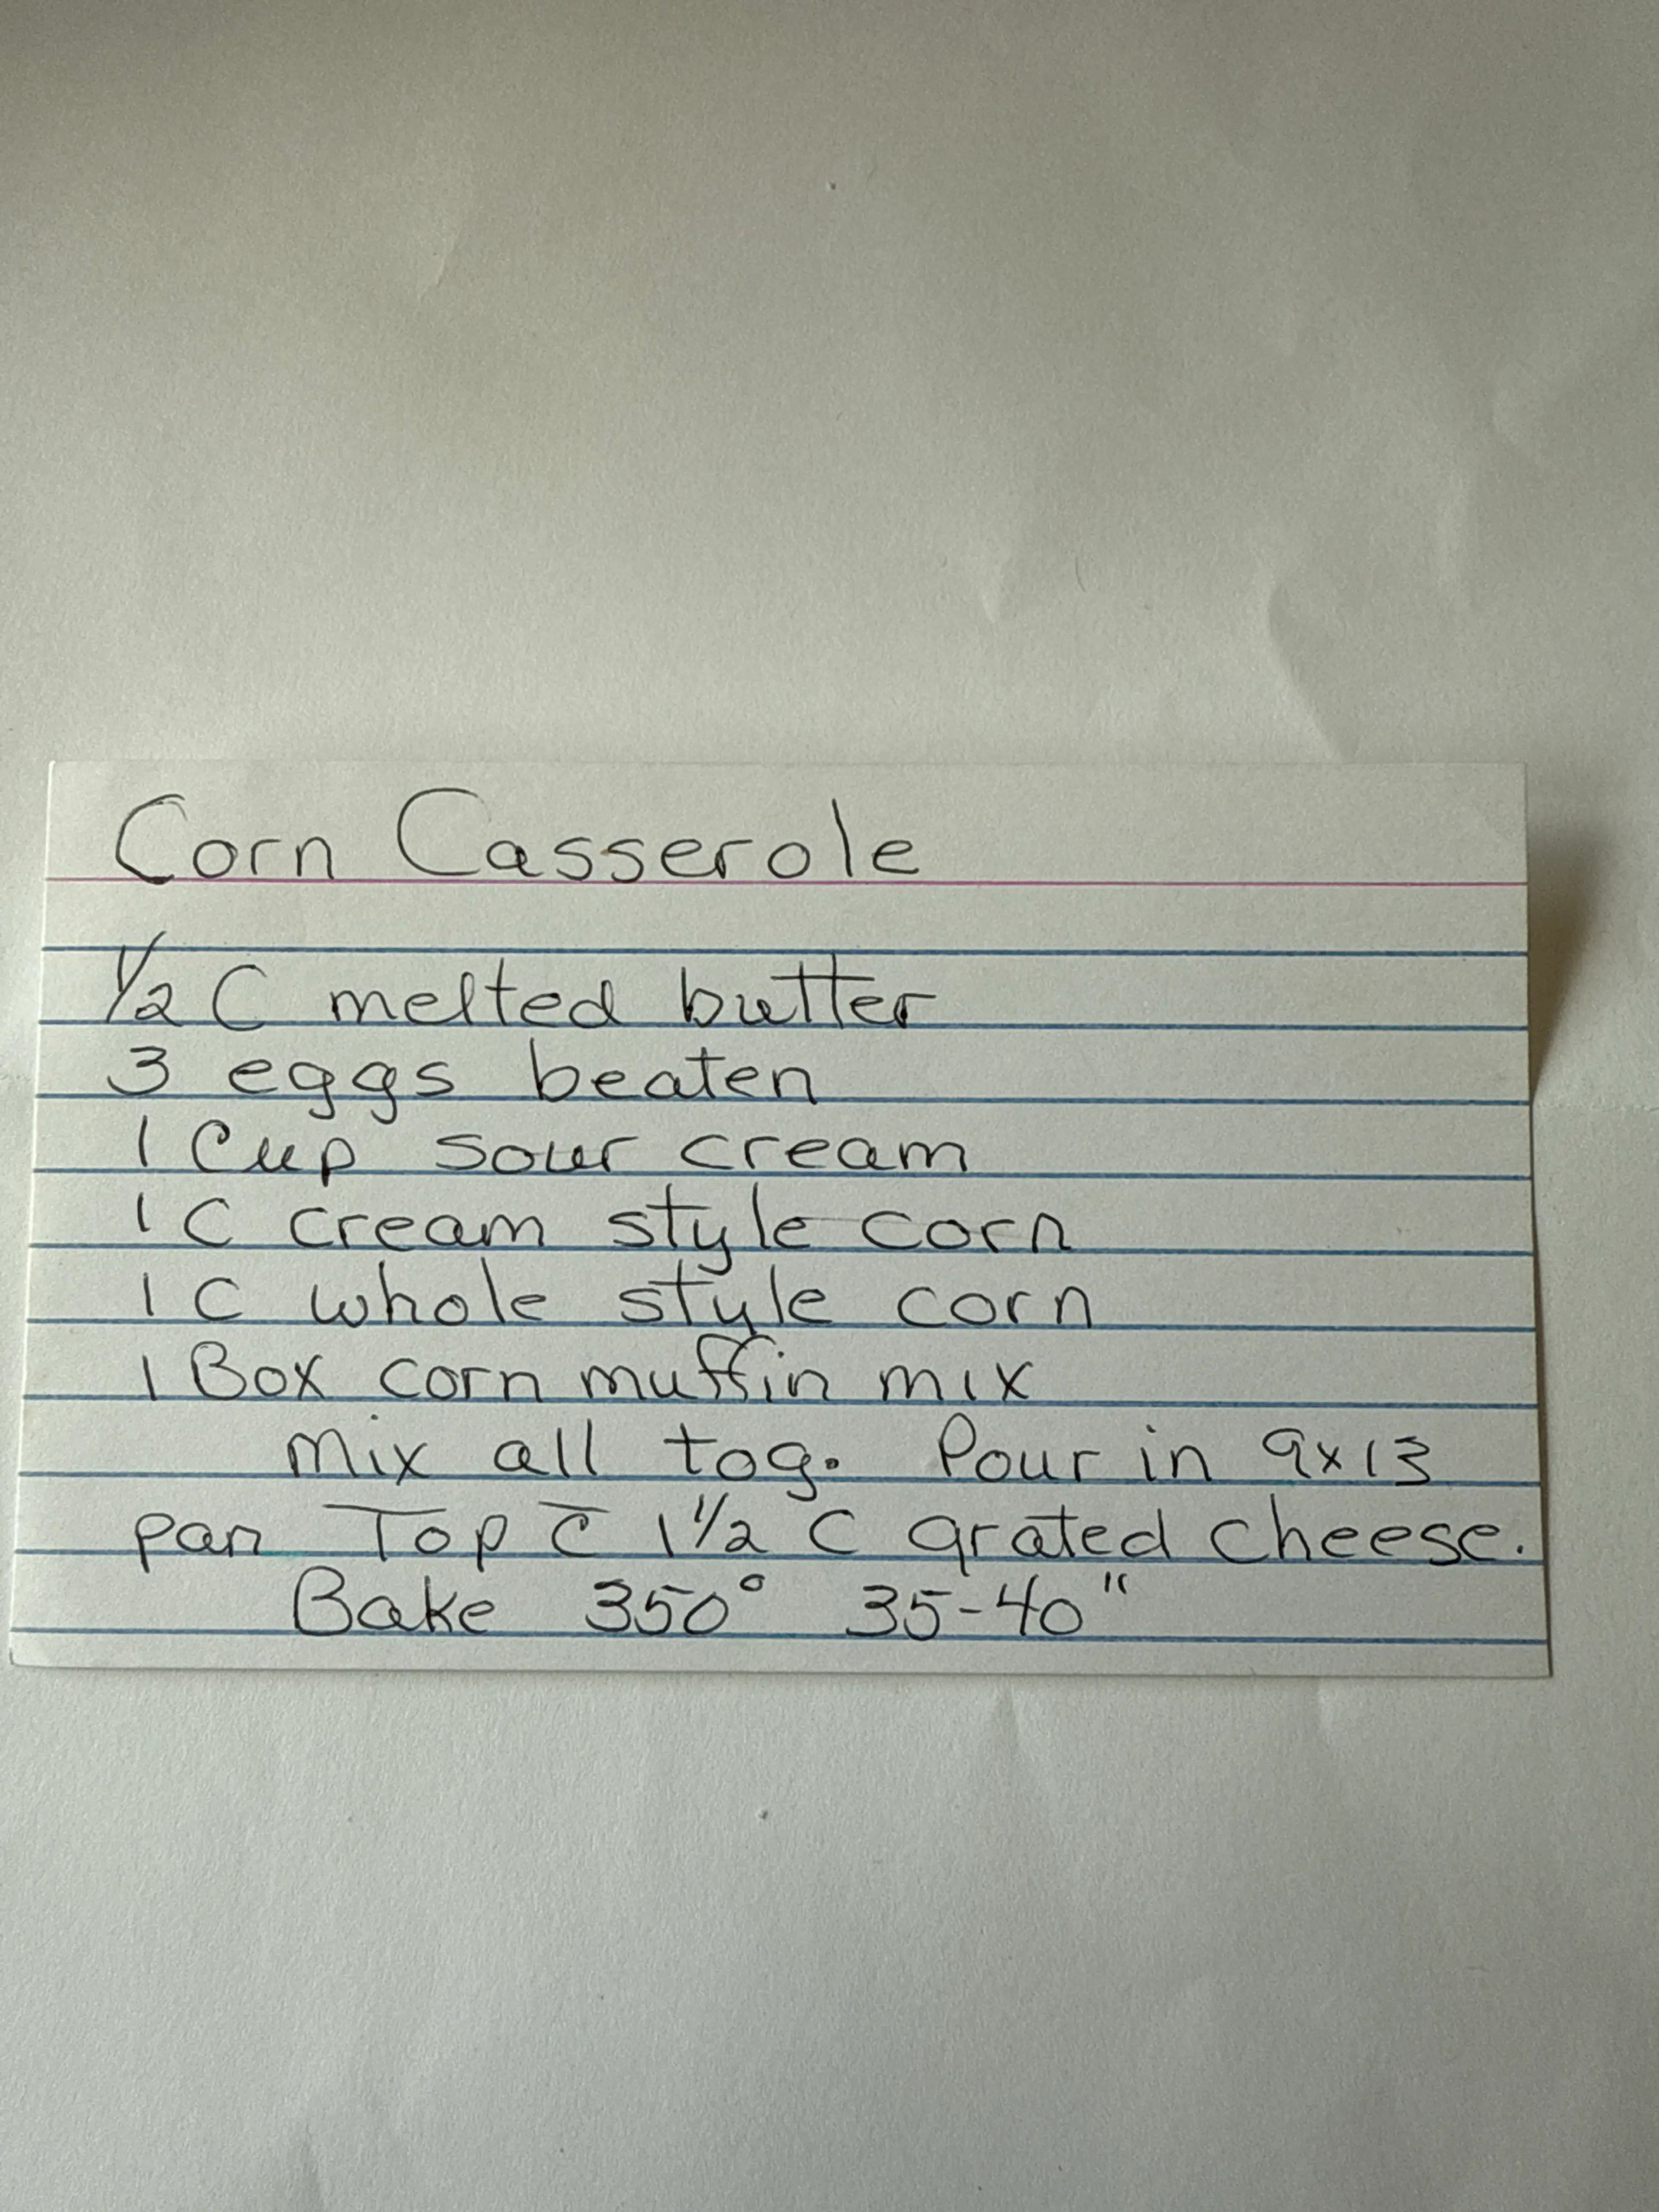 Corn Casserole
1/2 C melted butter
3 eggs beaten
1 Cup sour cream
1 C cream style corn
1 C whole style corn
1 Box corn muffin mix
mix all tog. Pour in 9x13
pan Top c̄ 1 1/2 C grated cheese.
Bake 350° 35-40"